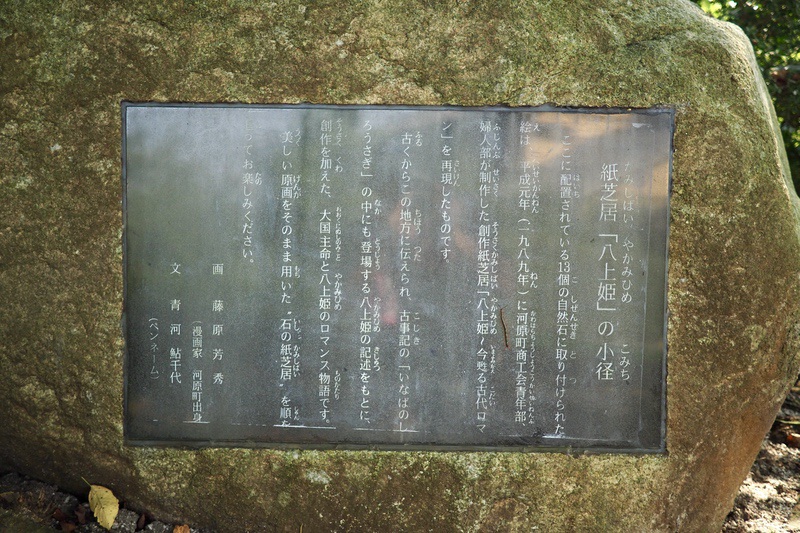 紙芝居「八上姫」の小径
ここに配置されている13個の自然石に取り付けられた
絵は、平成元年（一九八九年）に河原町商工会青年部、
婦人部が制作した創作紙芝居「八上姫〜今甦る古代ロマ
ン」を再現したものです。
古くからこの地方に伝えられ、古事記の「いなばのし
ろうさぎ」の中にも登場する八上姫の記述をもとに、
創作を加えた、大国主命と八上姫のロマンス物語です。
美しい原画をそのまま用いた“石の紙芝居”を順を
ってお楽しみください。
画 藤原芳秀
（漫画家 河原町出身）
文 青河鮎千代
（ペンネーム）